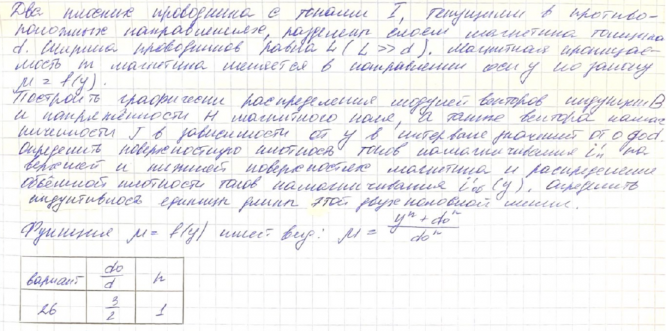 Два плоских проводника с токами I, текущими в противо-
положных направлениях, разделены слоем магнетика толщиной
d. Ширина проводников равна L (L >> d). Магнитная проницае-
мость магнетика меняется в направлении оси y по закону
μ = f(y).
Построить графически распределения модулей векторов индукции B
и напряженности H магнитного поля, а также вектора намаг-
ниченности J в зависимости от y в интервале значений от 0 до d.
Определить поверхностную плотность токов намагничивания i'п на
верхней и нижней поверхностях магнетика и распределение
объёмной плотности токов намагничивания i'об (y). Определить
индуктивность единицы длины этой двухполосной линии.
Функция μ = f(y) имеет вид: μ = (yⁿ + d₀ⁿ) / d₀ⁿ
вариант d₀/d n
26 3/2 1